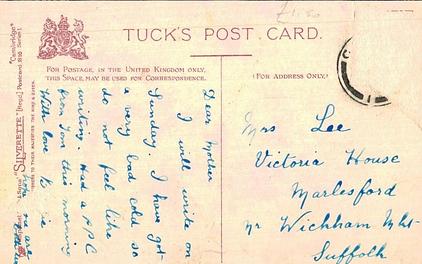 TUCK'S POST CARD.
FOR POSTAGE, IN THE UNITED KINGDOM ONLY,
THIS SPACE MAY BE USED FOR CORRESPONDENCE.
(FOR ADDRESS ONLY.)
Dear Mother
I will write on
Sunday. I have got
a very bad cold so
do not feel like
writing. Had a P.C
from Tom this morning
With love
Mrs Lee
Victoria House
Marlesford
nr Wickham Mkt
Suffolk
"SILVERETTE" [Regd] Postcard
"Cambridge"